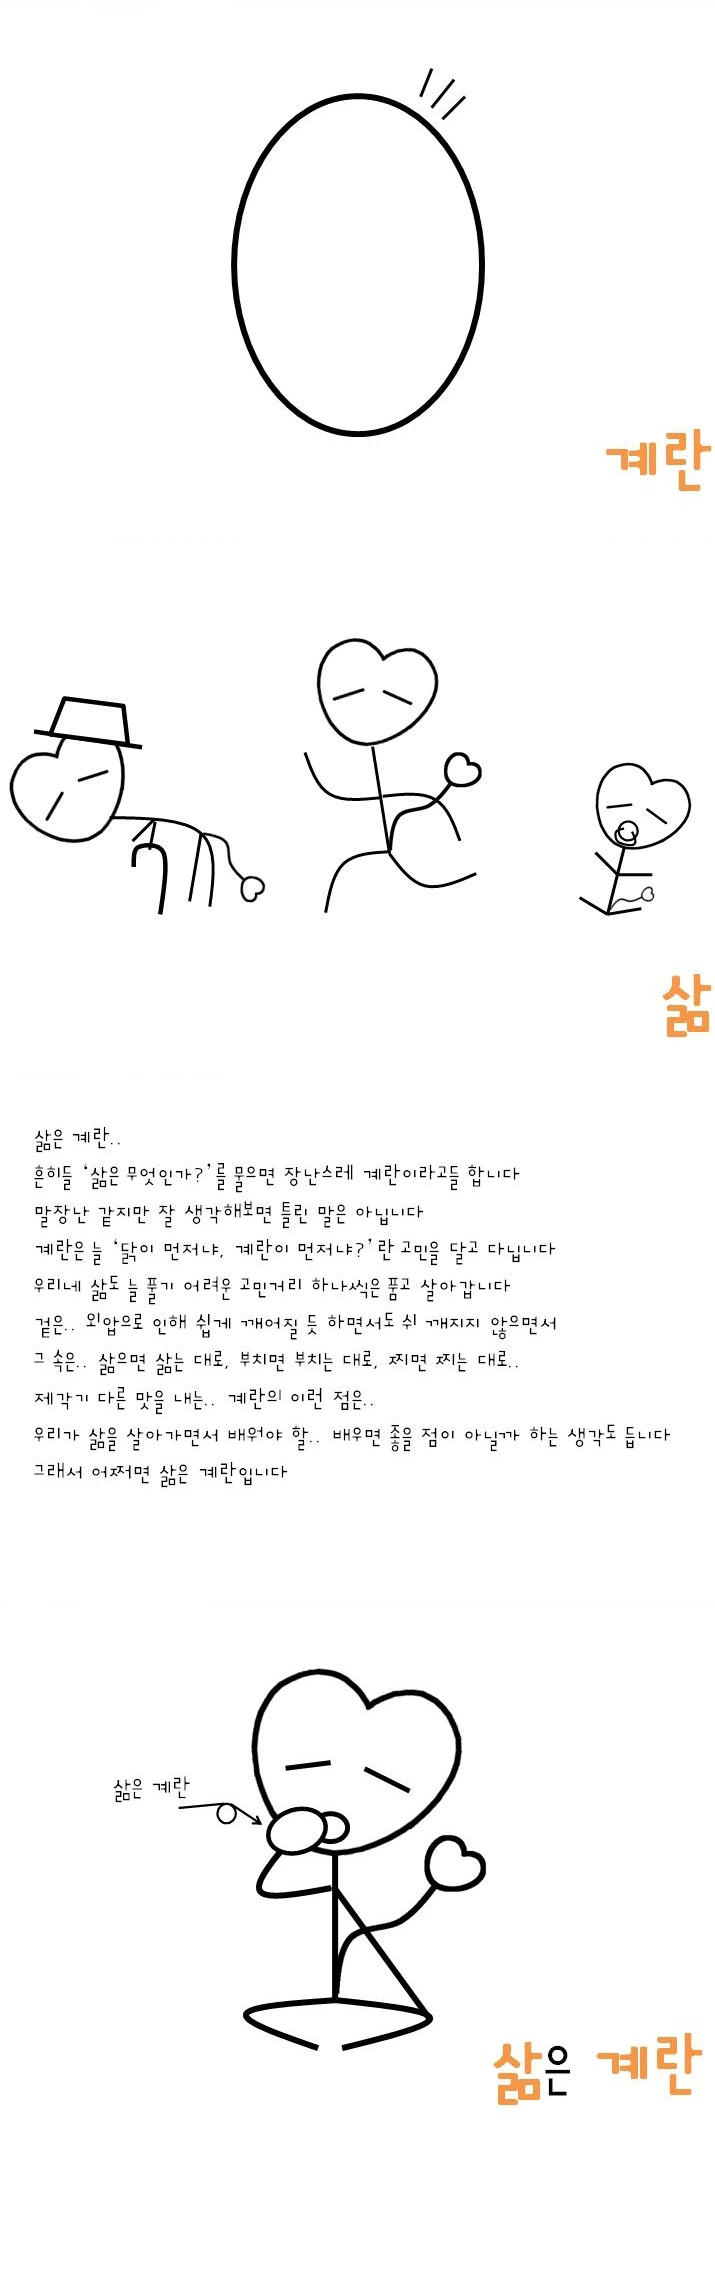 계란
삶
삶은 계란..
흔히들 '삶은 무엇인가?'를 물으면 장난스레 계란이라고들 합니다
말장난 같지만 잘 생각해보면 틀린 말은 아닙니다
계란은 늘 '닭이 먼저냐, 계란이 먼저냐?'란 고민을 달고 다닙니다
우리네 삶도 늘 풀기 어려운 고민거리 하나씩은 품고 살아갑니다
겉은.. 외압으로 인해 쉽게 깨어질 듯 하면서도 쉬 깨지지 않으면서
그 속은.. 삶으면 삶는 대로, 부치면 부치는 대로, 찌면 찌는 대로..
제각기 다른 맛을 내는.. 계란의 이런 점은..
우리가 삶을 살아가면서 배워야 할.. 배우면 좋을 점이 아닐까 하는 생각도 듭니다
그래서 어쩌면 삶은 계란입니다
삶은 계란
삶은 계란